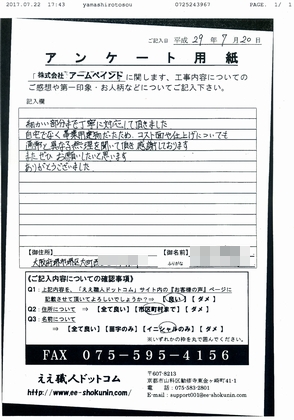 2017.07.22 17:43 yamashirotosou 0725243967 PAGE. 1/ 1
ご記入日 平成 29年 7月20日
アンケート用紙
「株式会社 アームペイント」に関します、工事内容についての
ご感想や第一印象・お人柄などについてご記入下さい。
記入欄
細かい部分まで丁寧に対応して頂きました
自宅でなく事業用建物だったため、コスト面や仕上げについても
通常と異なる無理を聞いて頂き感謝しております
またぜひお願いしたいと思います
ありがとうございました
【御住所】 【御名前】
大阪府堺市堺区
ふりがな
《ご記入内容についての確認事項》
Q1：上記内容を、「ええ職人ドットコム」サイト内の『お客様の声』ページに
記載させて頂いてよろしいでしょうか？⇒ 【良い】 【ダメ】
Q2：住所について ⇒ 【全て良い】【市区町村まで】 【ダメ】
Q3：名前について
⇒ 【全て良い】【苗字のみ】【イニシャルのみ】【ダメ】
※いずれかの枠を丸で囲みください。
FAX 075-595-4156
ええ職人ドットコム
http://www.ee-shokunin.com/
〒607-8213
京都市山科区勧修寺東金ヶ崎町41-1
電話：075-583-2801
E-mail：support001@ee-shokunin.com